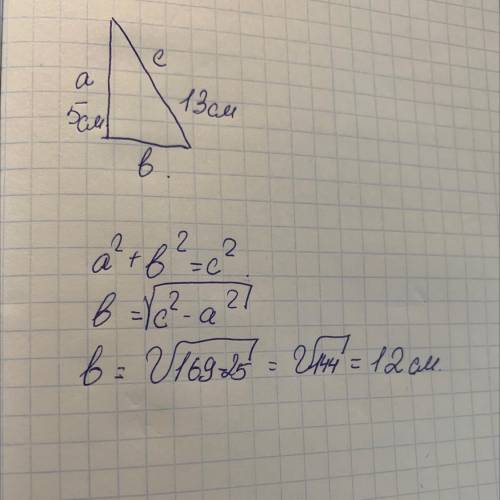 a
c
5см
13см
в
a² + в² = c².
в = √c² - a²
в = √169-25 = √144 = 12 см.